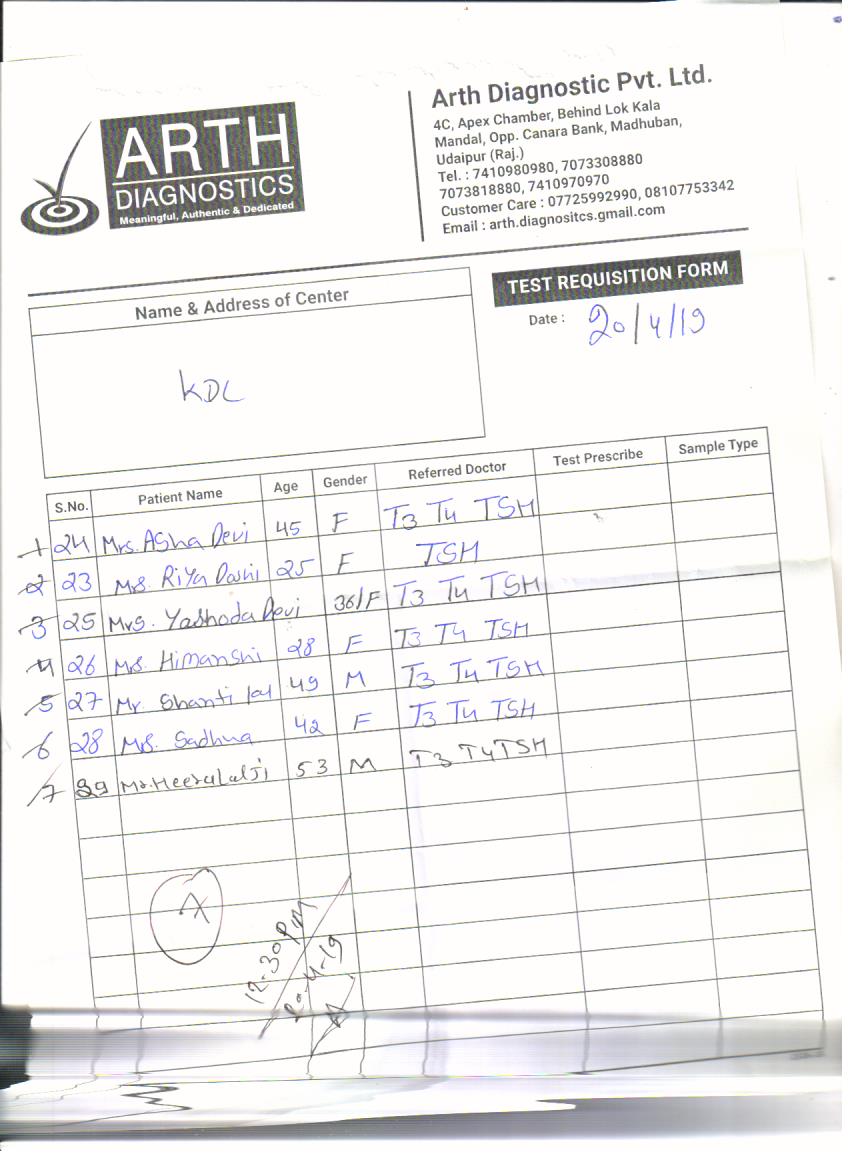 ARTH
DIAGNOSTICS
Meaningful, Authentic & Dedicated
Arth Diagnostic Pvt. Ltd.
4C, Apex Chamber, Behind Lok Kala
Mandal, Opp. Canara Bank, Madhuban,
Udaipur (Raj.)
Tel. : 7410980980, 7073308880
7073818880, 7410970970
Customer Care : 07725992990, 08107753342
Email : arth.diagnositcs.gmail.com
Name & Address of Center
KDL
TEST REQUISITION FORM
Date : 20/4/19
S.No. Patient Name Age Gender Referred Doctor Test Prescribe Sample Type
1 24 Mrs. Asha Devi 45 F T3 T4 TSH
2 23 Ms. Riya Doshi 25 F TSH
3 25 Mrs. Yashoda Devi 36/F T3 T4 TSH
4 26 Mrs. Himanshi 28 F T3 T4 TSH
5 27 Mr. Shanti lal 49 M T3 T4 TSH
6 28 Mrs. Sadhna 42 F T3 T4 TSH
7 29 Mr. Heeralalji 53 M T3 T4 TSH
A
12-30 PM
20-4-19